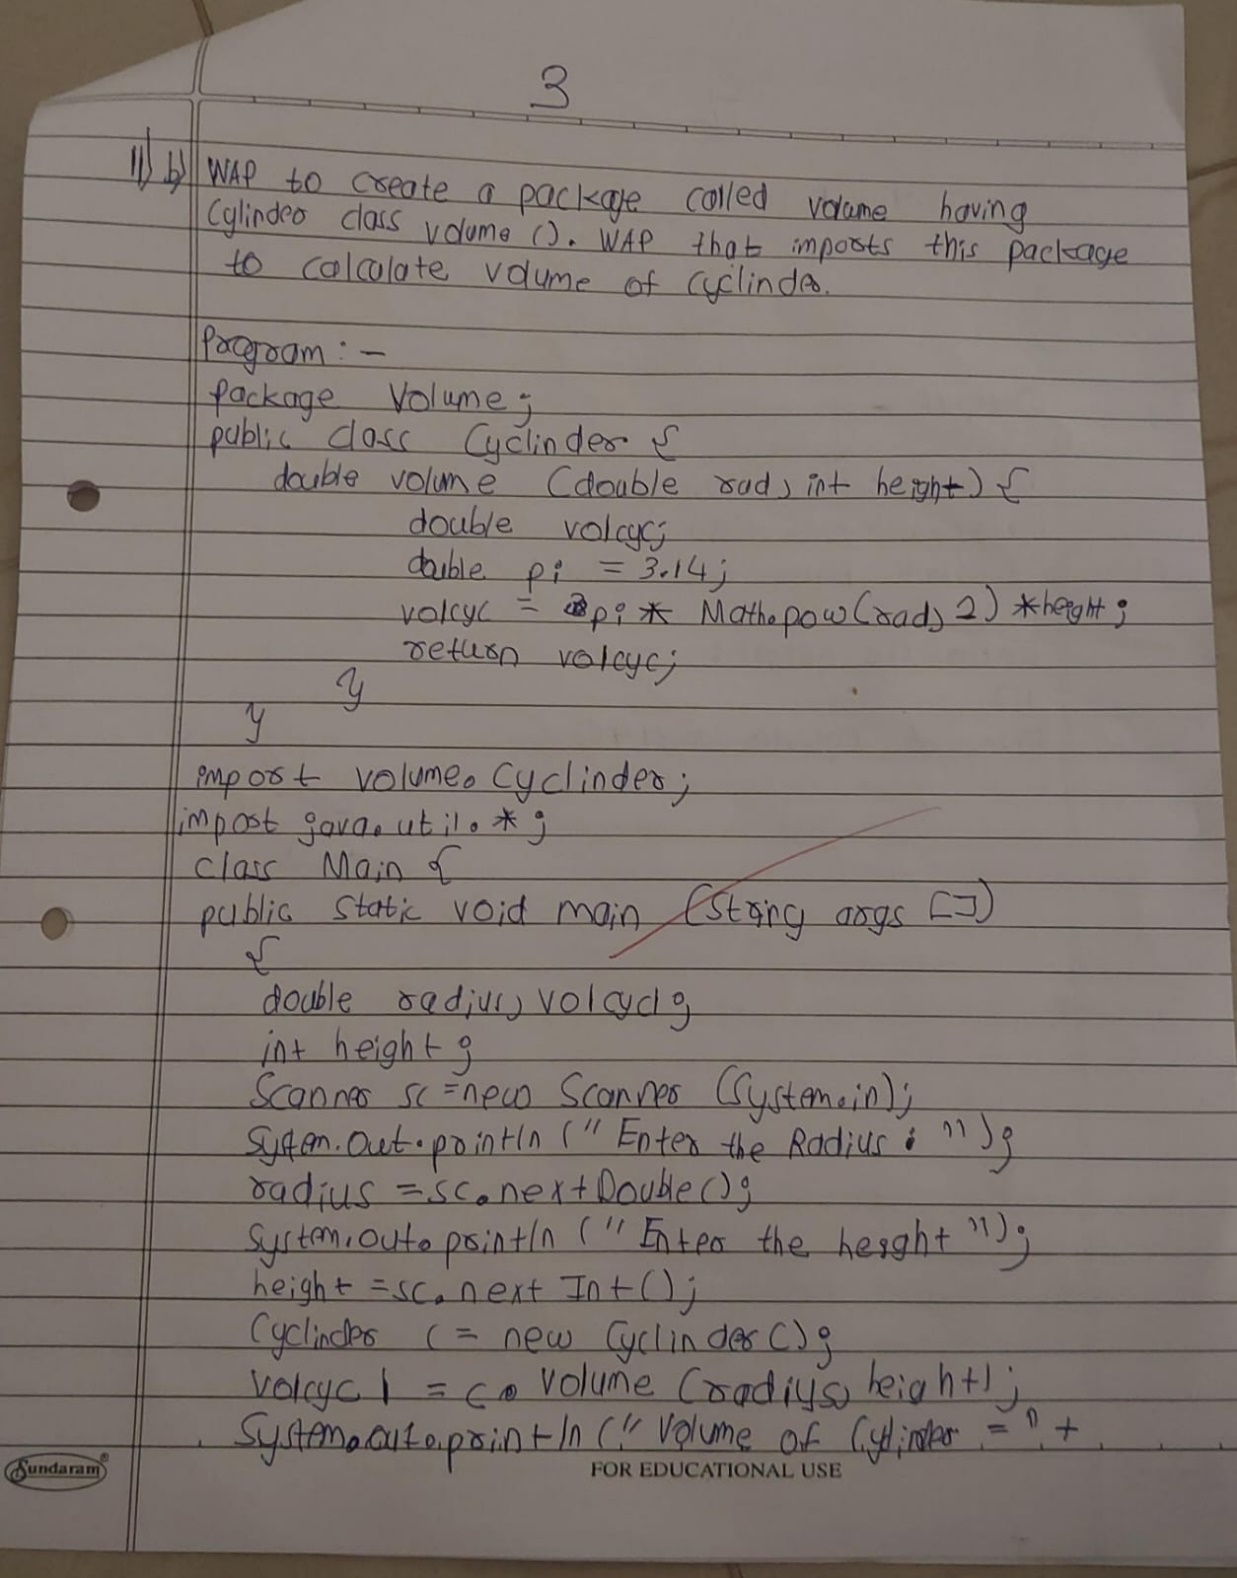 3
11) b) WAP to create a package called volume having
Cylinder class volume (). WAP that imports this package
to calculate volume of Cyclinder.
Program : -
package Volume;
public class Cyclinder {
double volume (double rad, int height) {
double volcyc;
double pi = 3.14;
volcyc = pi * Math.pow(rad, 2) *height;
return volcyc;
}
}
import volume. Cyclinder;
import java.util.*;
class Main {
public static void main (String args [])
{
double radius, volcycl;
int height;
Scanner sc = new Scanner (System.in);
System.out.println (" Enter the Radius : ");
radius = sc.nextDouble();
System.out.println (" Enter the height ");
height = sc.next Int();
Cyclinder c = new Cyclinder();
volcyc1 = c. volume (radius, height);
System.out.println (" Volume of Cylinder = " +
Sundaram®
FOR EDUCATIONAL USE